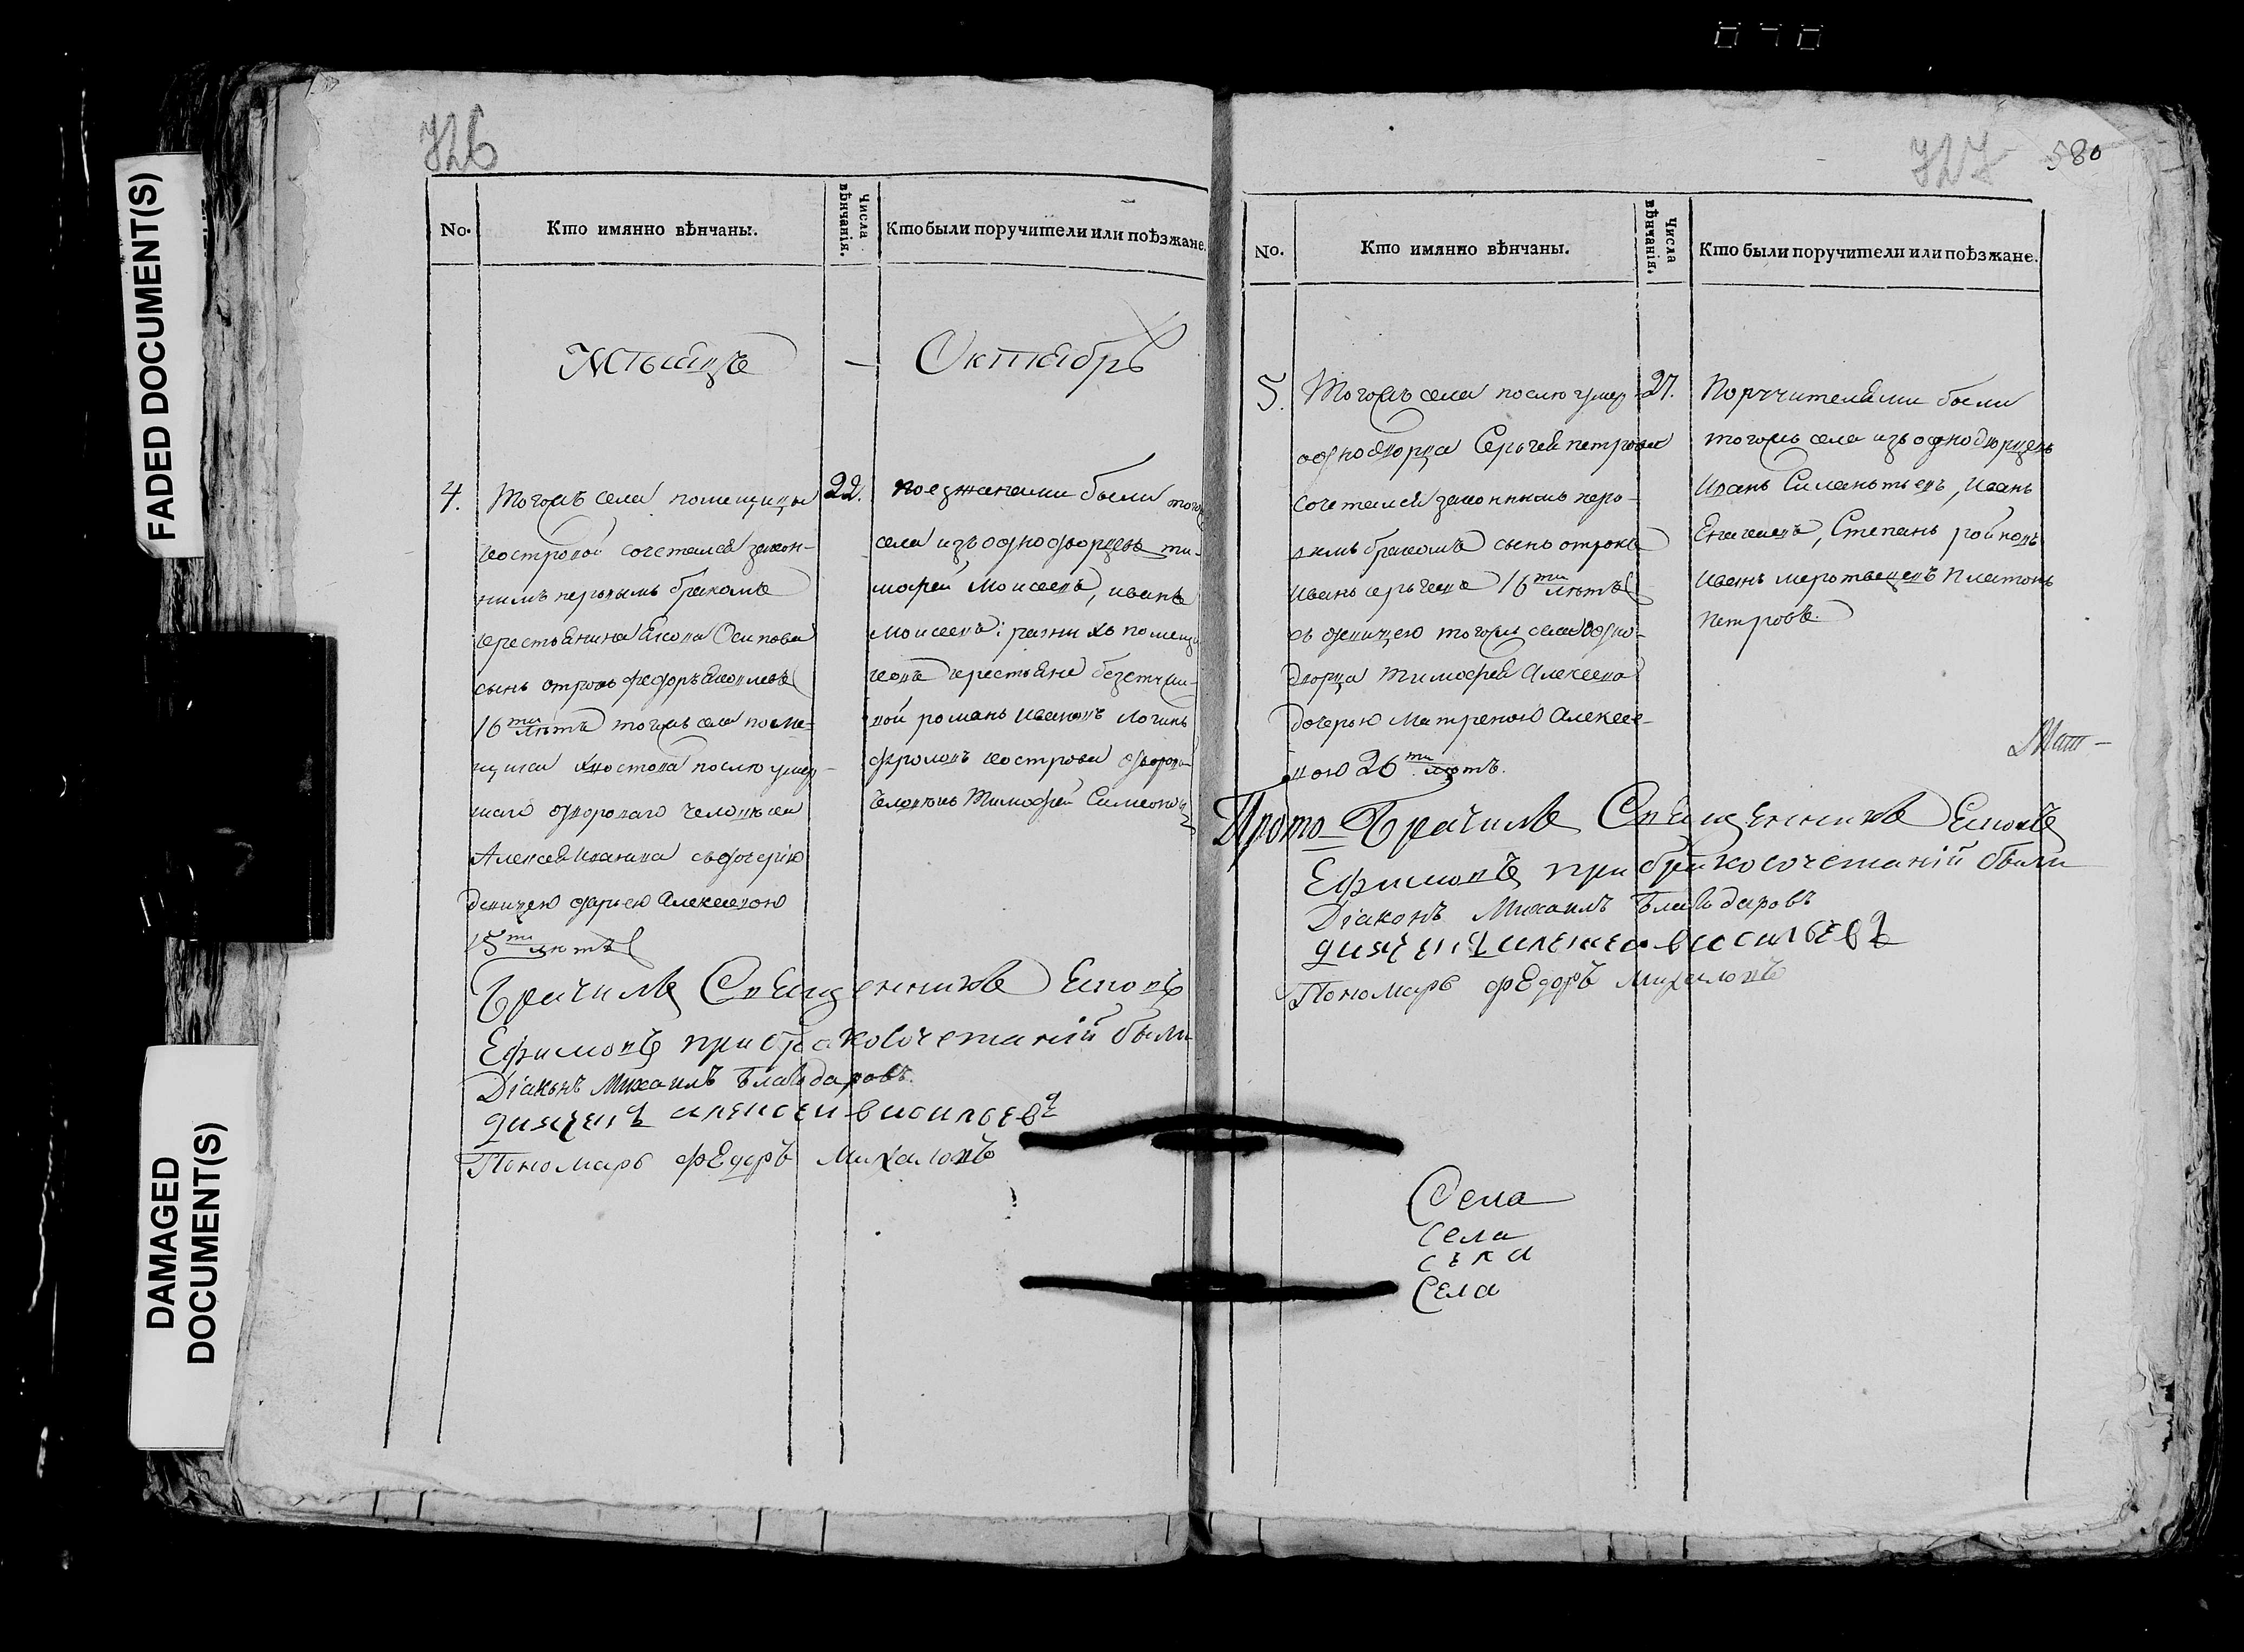 FADED DOCUMENT(S)
DAMAGED
DOCUMENT(S)
726
No.
Кто имянно вѣнчаны.
Числа
вѣнчанія.
Кто были поручители или поѣзжане.
Мѣсяцъ — Октябрь
4.
Тогожъ села помещицы
сочетался закон-
нимъ первымъ бракомъ
крестьянина Якова Осипова
сынъ отрокъ Федоръ Яковлевъ
16ти лѣтъ тогожъ села поме-
щика послѣ умер-
шаго дворового человѣка
Алексея съ дочерію
девицею Дарьею Алексеевою
15ти лѣтъ
22.
поезжанами были того
села изъ однодворцевъ Ти-
мофей Моисеевъ, Иванъ
Моисеевъ: разнихъ помещи
ковъ крестьяне
романъ Ивановъ Логинъ
Фроловъ
человѣкъ Тимофей
Брачилъ Священникъ
Ефимовъ при бракосочетаній были
Діаконъ Михаилъ
дячекъ алексеи василевъ
Пономарь Федоръ Михаловъ
727
580
No.
Кто имянно вѣнчаны.
Числа
вѣнчанія.
Кто были поручители или поѣзжане.
5.
Тогожъ села послѣ умер
однодворца Сергея петрова
сочетался законнымъ пер-
вымъ бракомъ сынъ отрокъ
Иванъ сергеевъ 16ти лѣтъ
съ девицею тогожъ села одно-
дворца Тимофея Алексеева
дочерью Матреною Алексее-
вою 26ти лѣтъ.
27.
Поручителями были
тогожъ села изъ однодворцевъ
Иванъ, Иванъ
Степанъ
Иванъ Платонъ
Петровъ.
Мит-
Прото- Брачилъ Священникъ
Ефимовъ при бракосочетаній были
Діаконъ Михаилъ
дячекъ алексеи василевъ
Пономарь Федоръ Михаловъ
Села
Села
села
Села